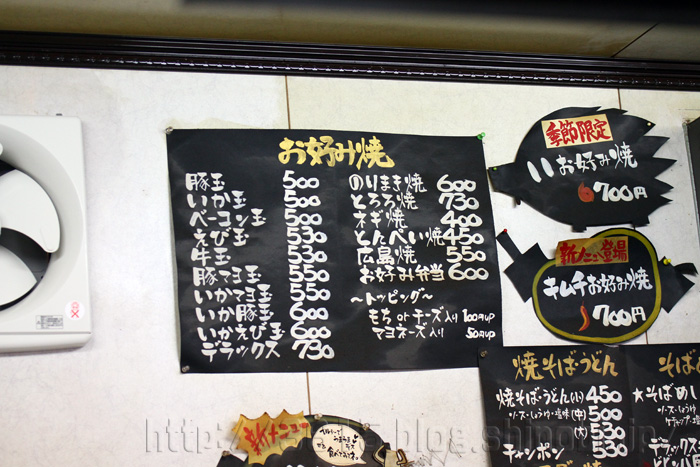 お好み焼
豚玉 500
いか玉 500
ベーコン玉 500
えび玉 530
牛玉 530
豚マヨ玉 550
いかマヨ玉 550
いか豚玉 600
いかえび玉 600
デラックス 730
のりまき焼 600
とろろ焼 730
ネギ焼 400
とんぺい焼 450
広島焼 550
お好み弁当 600
～トッピング～
もち orチーズ入り 100円UP
マヨネーズ入り 50円UP
季節限定
お好み焼
700円
新メニュー登場
キムチお好み焼
700円
焼そば・うどん
焼そば・うどん(小) 450
ソース・しょうゆ・塩味(中) 500
(大) 530
チャンポン
焼そ
★そばめし
ソース・しょうゆ
デラックス